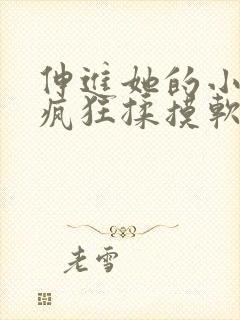 伸进她的小
疯狂揉摸软
老雪